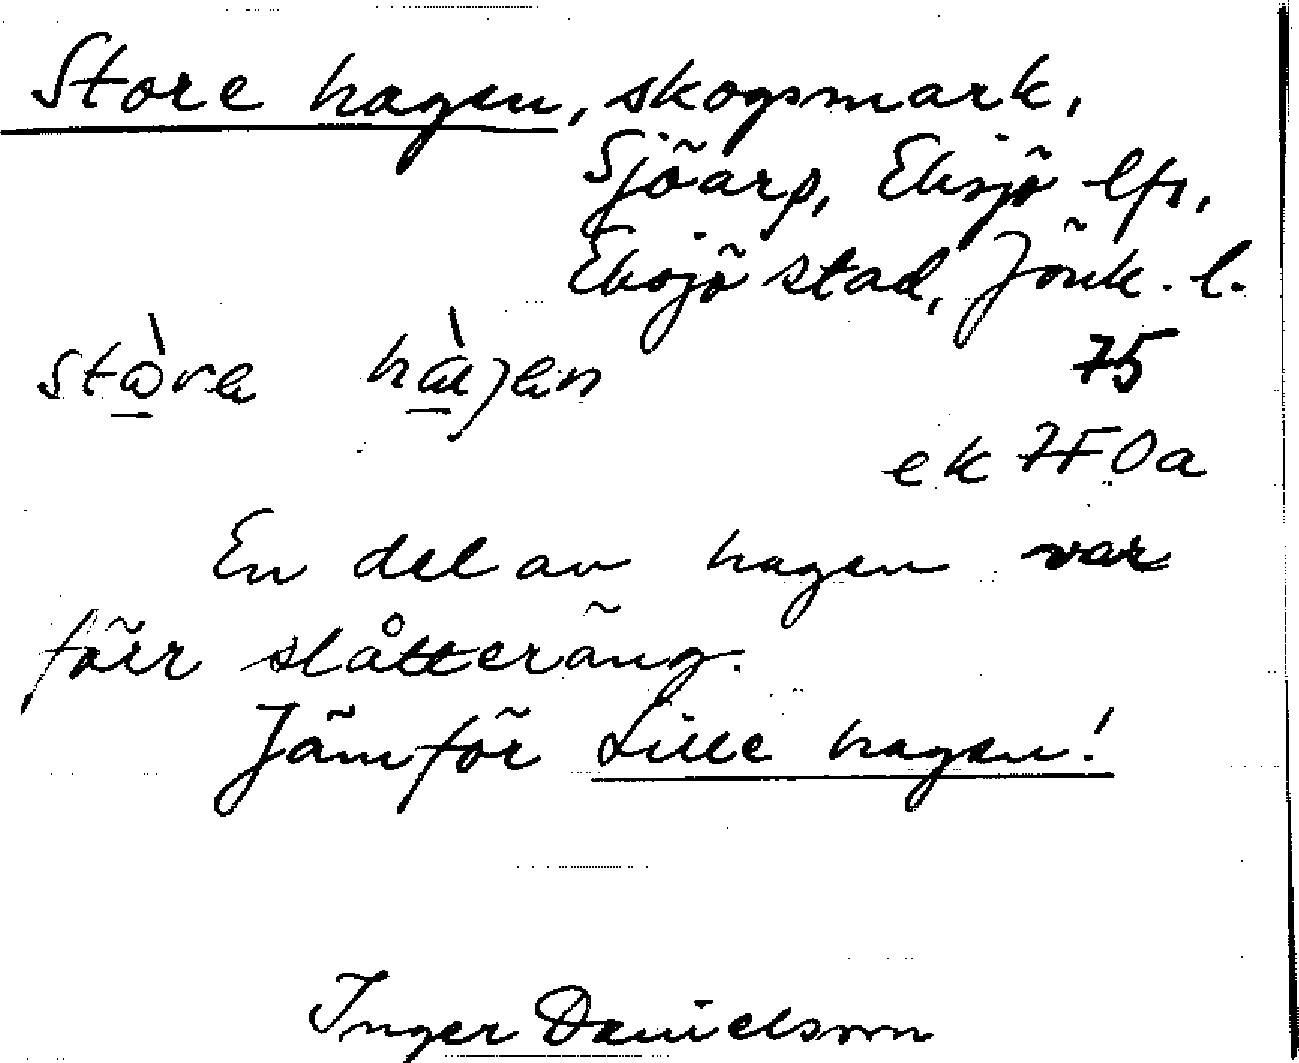 Store hagen, skogsmark,
Sjöarp, Eksjö lfs,
Eksjö stad, Jönk. l.
75
ek 7F0a
En del av hagen var
förr slåtteräng.
Jämför Lille hagen!
Inger Danielsson